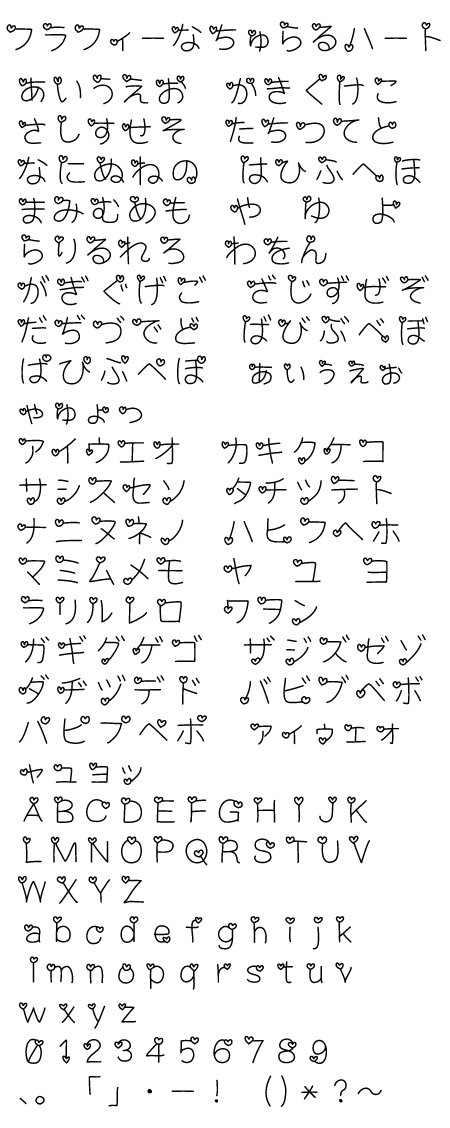 フラフィーなちゅらるハート
あいうえお がきくけこ
さしすせそ たちつてと
なにぬねの はひふへほ
まみむめも や ゆ よ
らりるれろ わをん
がぎぐげご ざじずぜぞ
だぢづでど ばびぶべぼ
ぱぴぷぺぽ ぁぃぅぇぉ
ゃゅょっ
アイウエオ カキクケコ
サシスセソ タチツテト
ナニヌネノ ハヒフヘホ
マミムメモ ヤ ユ ヨ
ラリルレロ ワヲン
ガギグゲゴ ザジズゼゾ
ダヂヅデド バビブベボ
パピプペポ ァィゥェォ
ャュョッ
ABCDEFGHIJK
LMNOPQRSTUV
WXYZ
abcdefghijk
lmnopqrstuv
wxyz
0123456789
、。 「」・ー！ ()*?～